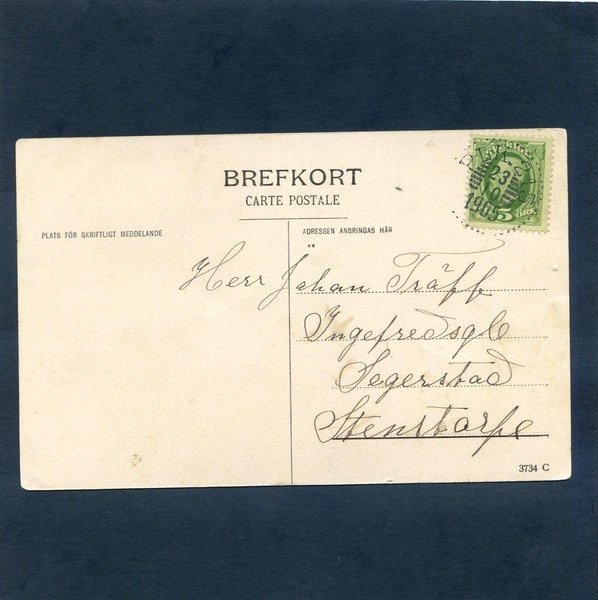 BREFKORT
CARTE POSTALE
PLATS FÖR SKRIFTLIGT MEDDELANDE
ADRESSEN ANBRINGAS HÄR
SVERIGE
23
1905
5 ÖRE
Herr Johan Träff
Ingefredsgb
Segerstad
Stenstorp
3734 C